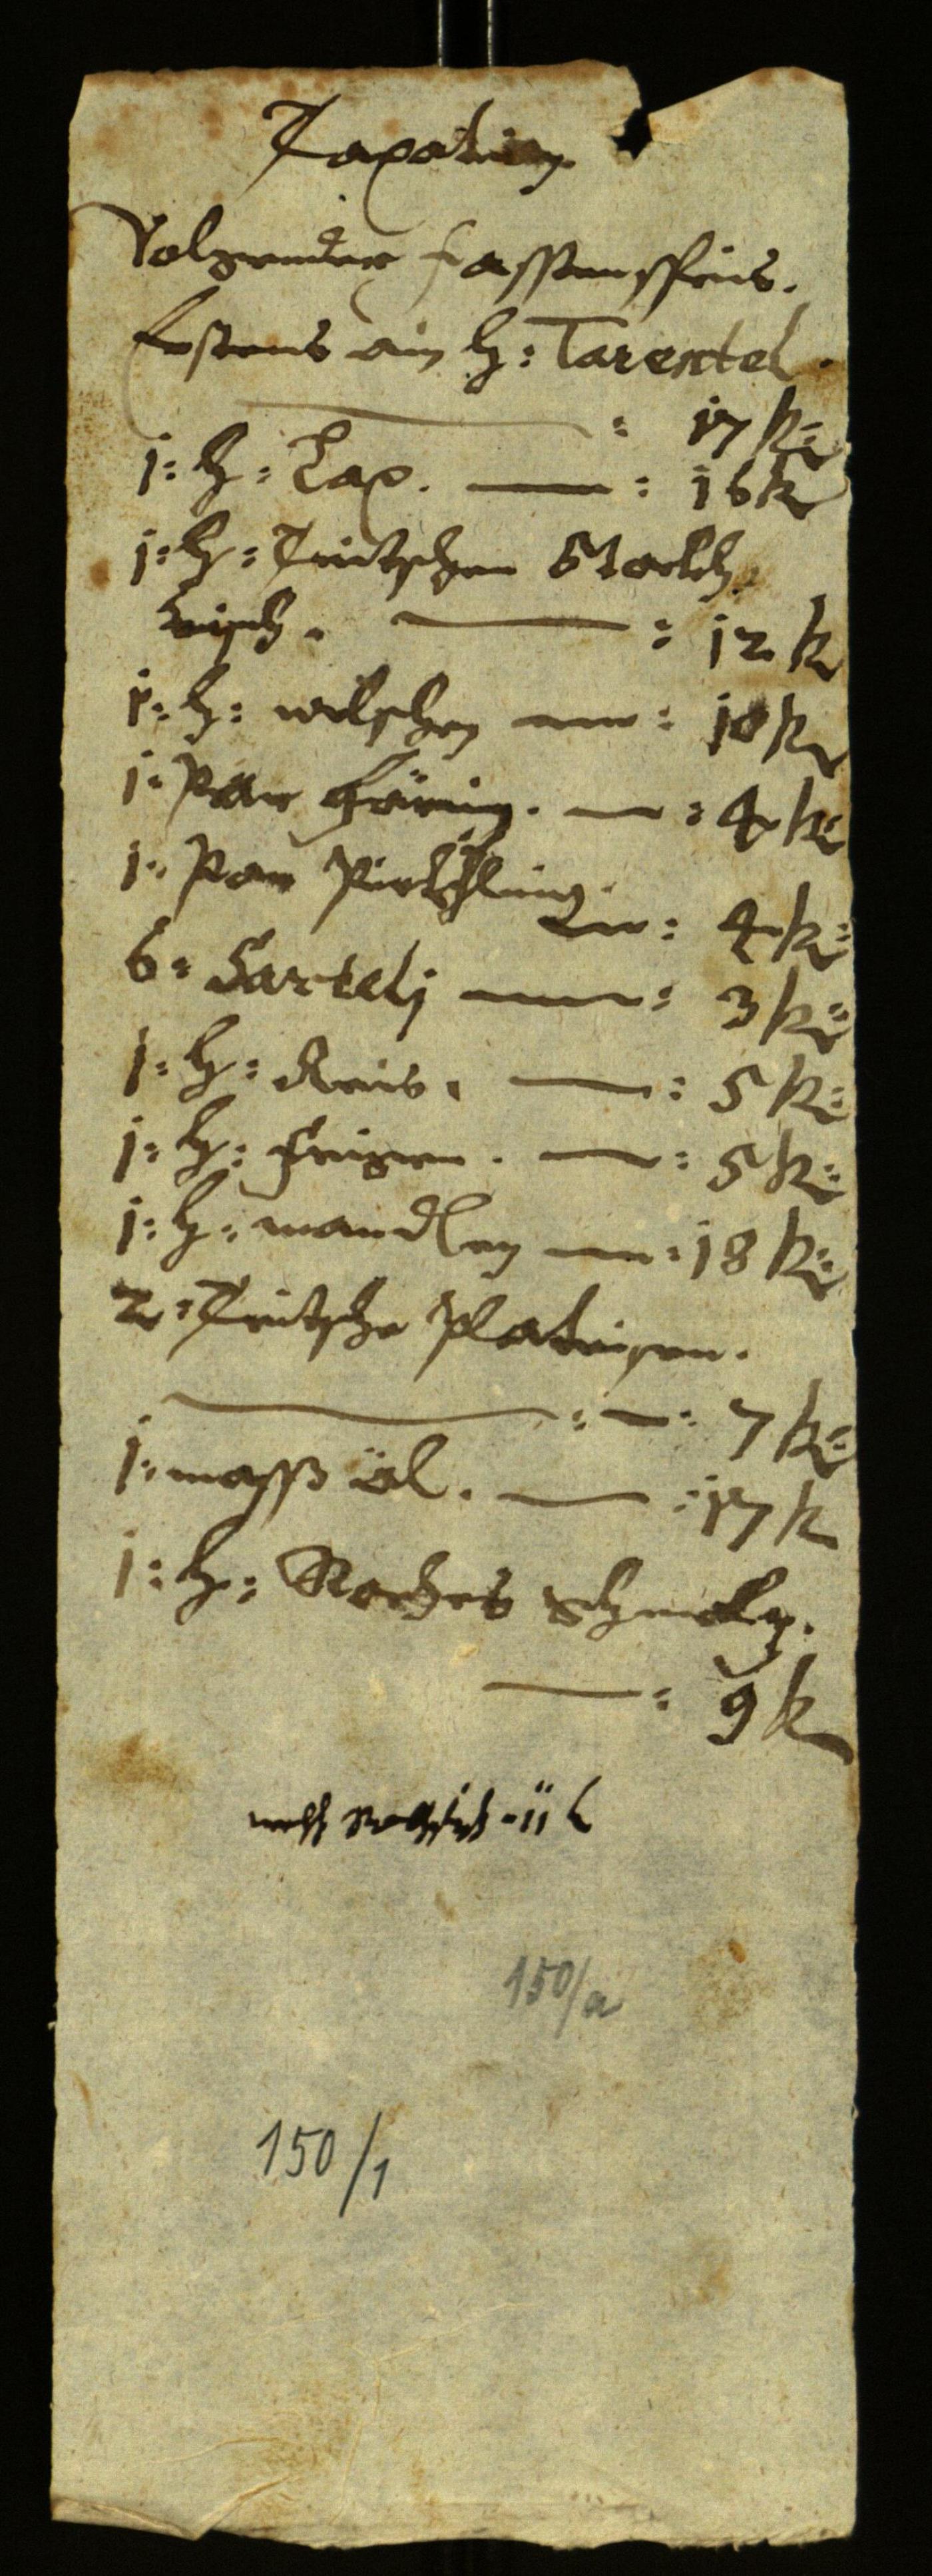 Taxation
Volgender fasstenspheis.
Erstens ain ℔: Tarentel.
: 17 k:
j: ℔: Lax. — : 16 k
j: ℔: Teitschen Stockh
visch. — : 12 k
j: ℔: welschen — : 10 k
j: Par Häring. — : 4 k:
j: Par Pickhling.
— : 4 k:
6: Sartelj — : 3 k:
j: ℔: Reis. — : 5 k:
j: ℔: feigen. — : 5 k:
j: ℔: mandlen — : 18 k:
2: Teitsche Plateisen.
: — : 7 k:
j: mass öl. — : 17 k
j: ℔: Roches schmalz.
— : 9 k
150/a
150/1